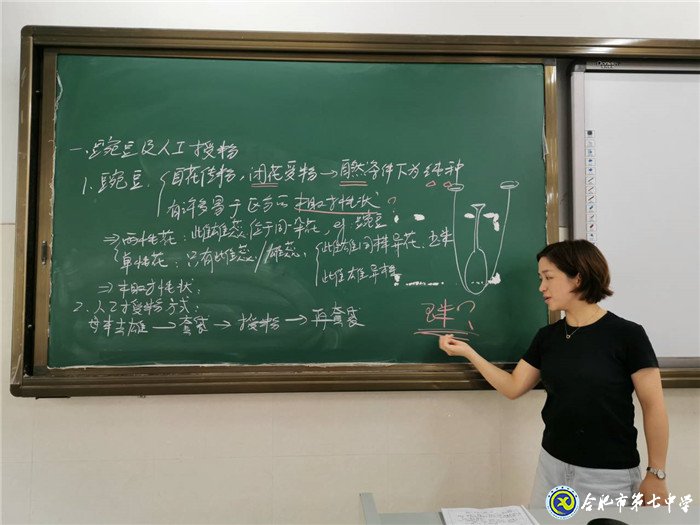 一、豌豆及人工授粉
1. 豌豆 自花传粉,闭花受粉→自然条件下为纯种
有许多易于区分的相对性状
⇒两性花:雌雄蕊位于同一朵花,eg.豌豆
单性花:只有雌蕊/雄蕊. 雌雄同株异花,玉米
雌雄异株
⇒相对性状:
2. 人工授粉方式:
母本去雄→套袋→授粉→再套袋
?
合肥市第七中学